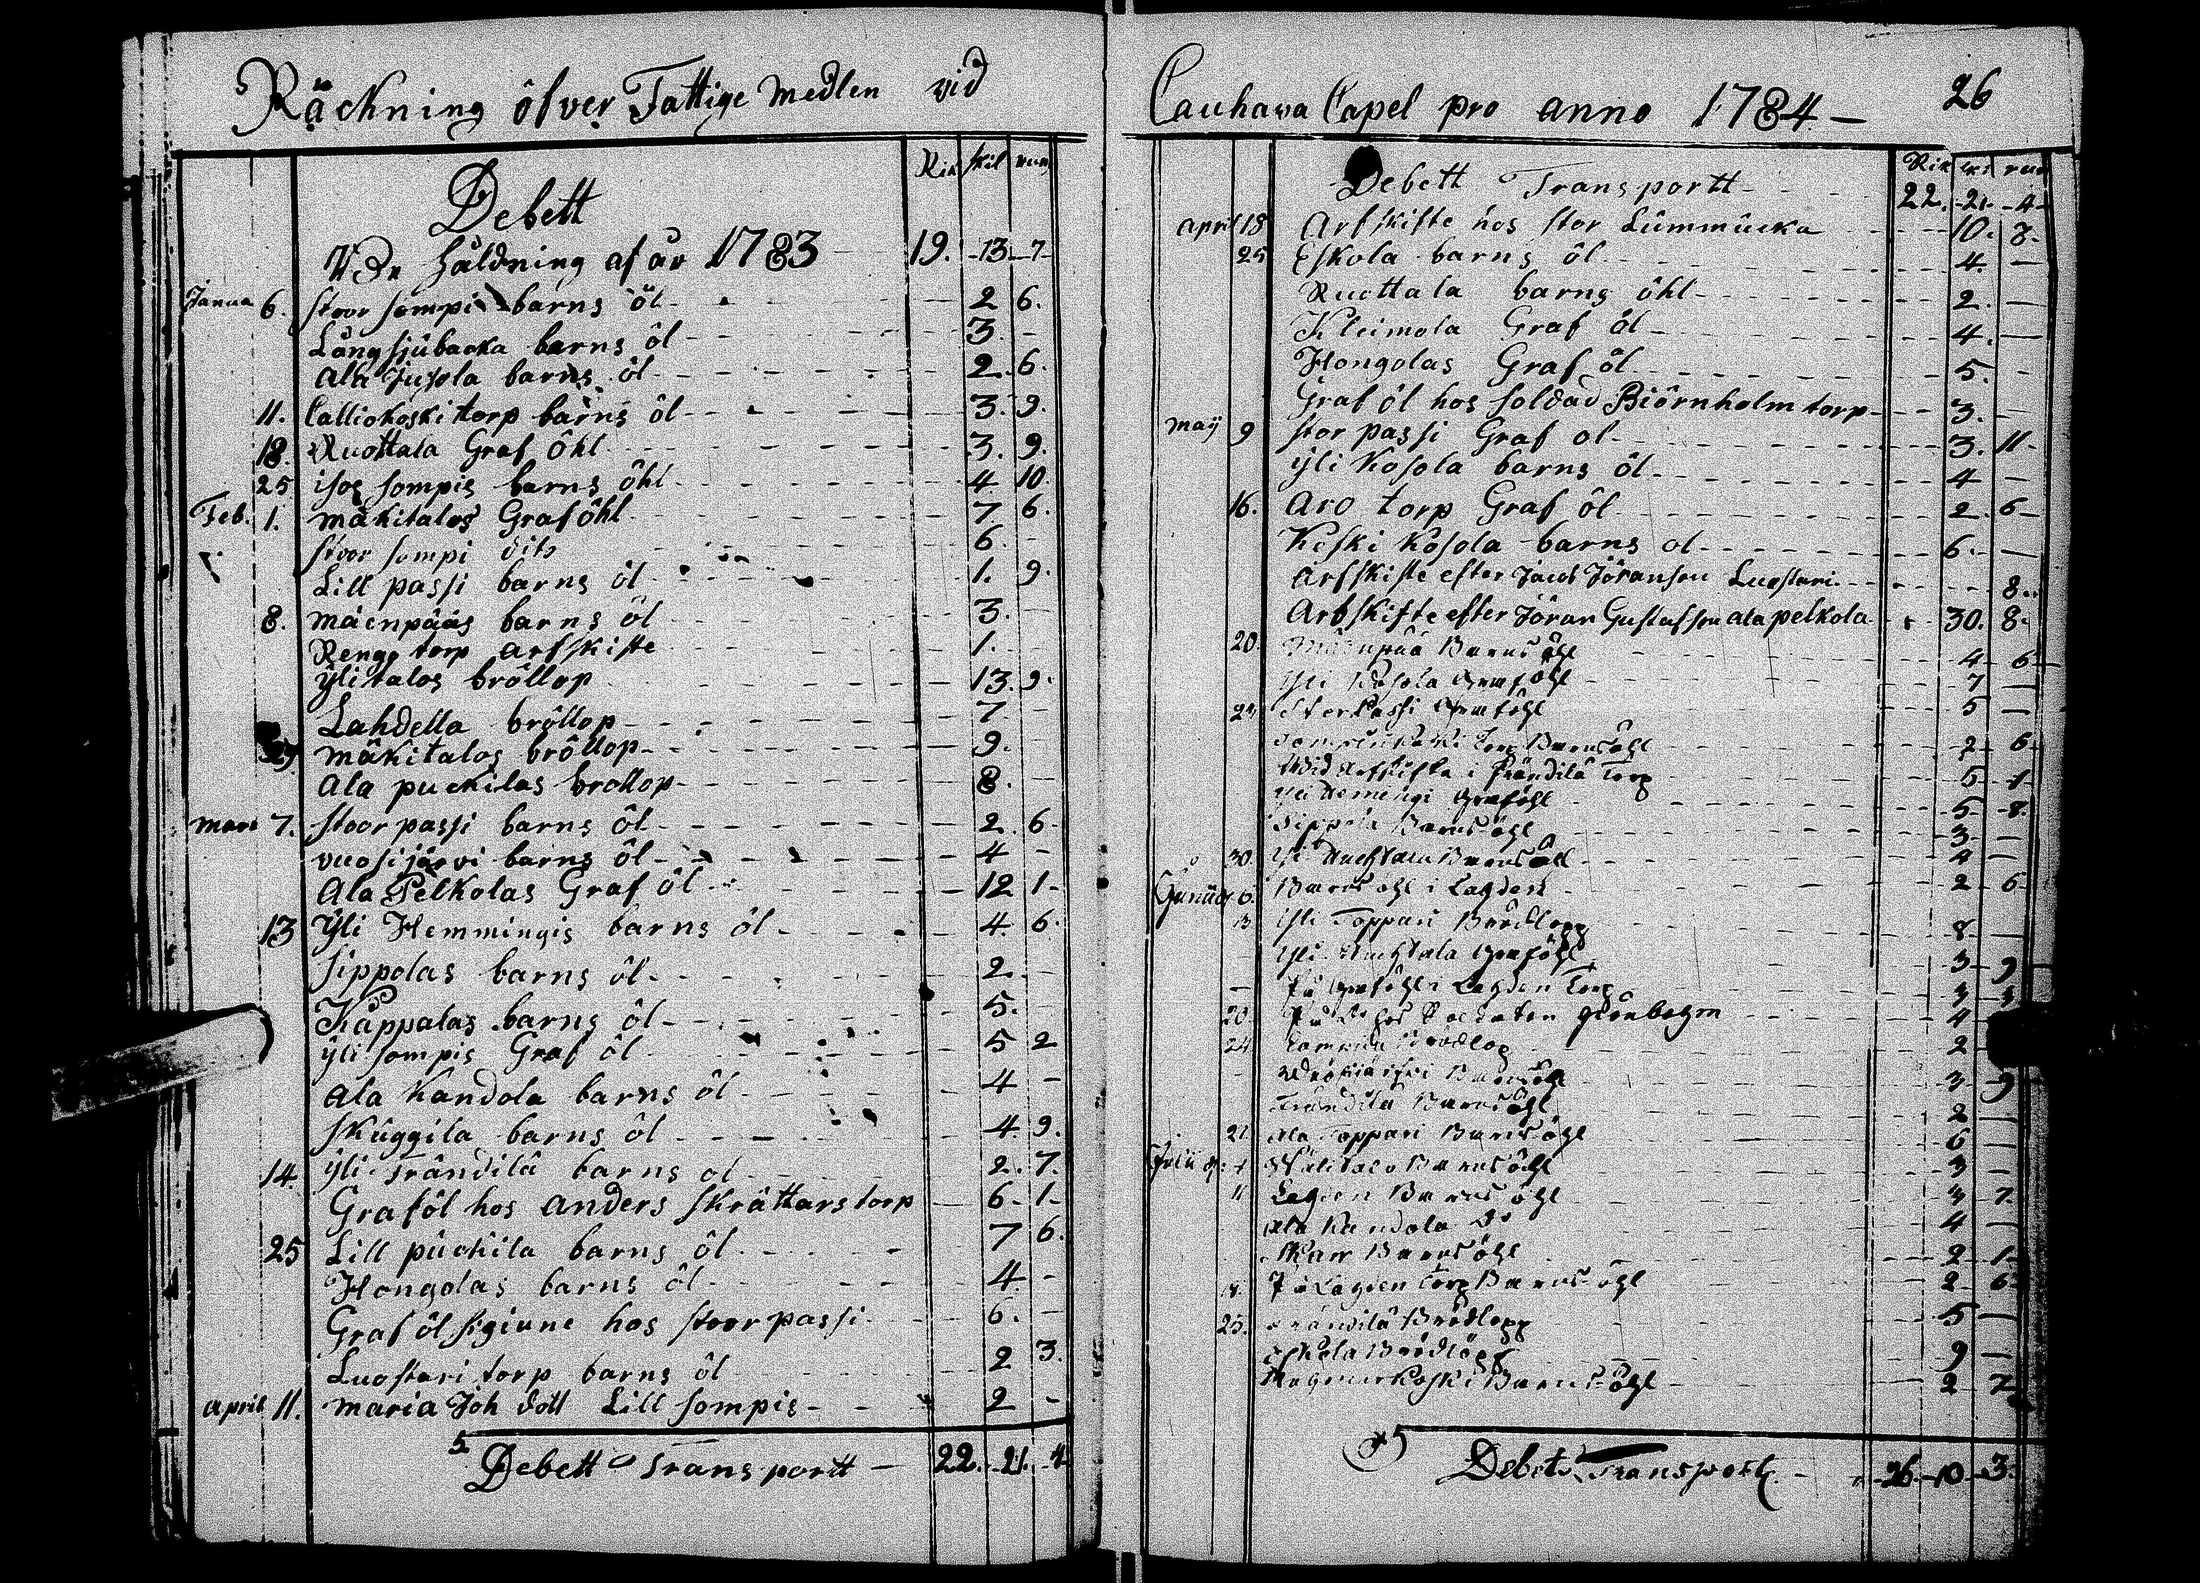 Räckning öfver Fattige medlen vid
Debett
Rik skil run
Vdr håldning af år 1783 19. 13. 7
Janua 6. stoor sompi barns öl 2 6.
Långsjübacka barns öl 3. -
Ala Jusola barns öl 2. 6.
11. Calliokoski torp barns öl 3. 9.
18. Ruottala Graf öhl 3. 9.
25 isos sompis barns öhl 4 10.
Feb. 1. mäkitalos Graf öhl 7 6.
stoor sompi dito 6. -
Lill passi barns öl 1. 9.
8. mäenpääs barns öl 3. -
Rengo torp arfskifte 1. -
ÿlitalos bröllop 13. 9.
Lahdella bröllop 7 -
29 mäkitalos bröllop 9. -
Ala puckilas brollop 8. -
mars 7. stoor passi barns öl 2. 6
vuosijärvi barns öl 4 -
Ala Pelkolas Graf öl 12 1
13 Ÿli Hemmingis barns öl 4. 6.
sippolas barns öl 2. -
Käppalas barns öl 5. -
ÿli sompis Graf öl 5 2
ala Kandola barns öl 4 -
skuggila barns öl 4. 9.
14. ÿli Trändilä barns ol 2. 7.
Graföl hos anders skrättars torp 6 1
25 Lill puckila barns öl 7 6.
Hongolas barns öl 4. -
Graf öl Sigiune hos stoor passi 6. -
Luostari torp barns öl 2 3.
april 11. maria Joh dott Lill sompis 2 -
Debett Transportt 22. 21. 4
Cauhava Capel pro anno 1784 26
Debett Transportt 22. 21. 4
april 18 Arfskifte hos stor Lümmücka 10. 8.
25 Eskola barns öl 4. -
Ruottala barns öhl 2. -
Kleimola Graf öl 4. -
Hongolas Graf öl 5. -
Graf öl hos soldad Biörnholm torp 3. -
maÿ 9 stor passi Graf ol 3. 11
ÿli Kosola barns öl 4 -
16. Aro torp Graf öl 2. 6
Keski Kosola barns ol 6. -
Arfskifte efter Jacob Jöranson Luostari 8.
Arfskifte efter Jöran Gustafson ala pelkola 30. 8.
20. Mäenpää Barns öhl 4 6
Ÿli Kosola Graföhl 7 -
Stor Passi Graföhl 5 -
Torp Barnsöhl 2 6
Wid Arfskifte i Trändilä Torp 5 1
Yli Hemingi Graföhl 5 8.
Sippola Barns öhl 3 -
30. Yli Barnsöhl 4 -
6. Barns öhl i Lagden 2 6
13 Yli Toppari Brödlopp 8 -
Yli Graföhl 3 9
På Graföhl i Lagden Torp 3 3
20. 4
24 Brödlop 2
Barnsöhl 3 9
Trändilä Barnsöhl 2 -
27 Ala Toppari Barnsöhl 6 -
Välitalo Barnsöhl 3 -
11 Lagden Barns öhl 3 7.
Ala Kandola Do 4 -
Barnsöhl 2 1
På Lagden Torp Barns öhl 2 6
25. Trändilä Brödlopp 5 -
Eskola Brödlöpp 9 -
Barns öhl 2 7
Debet Transport 26 10 3